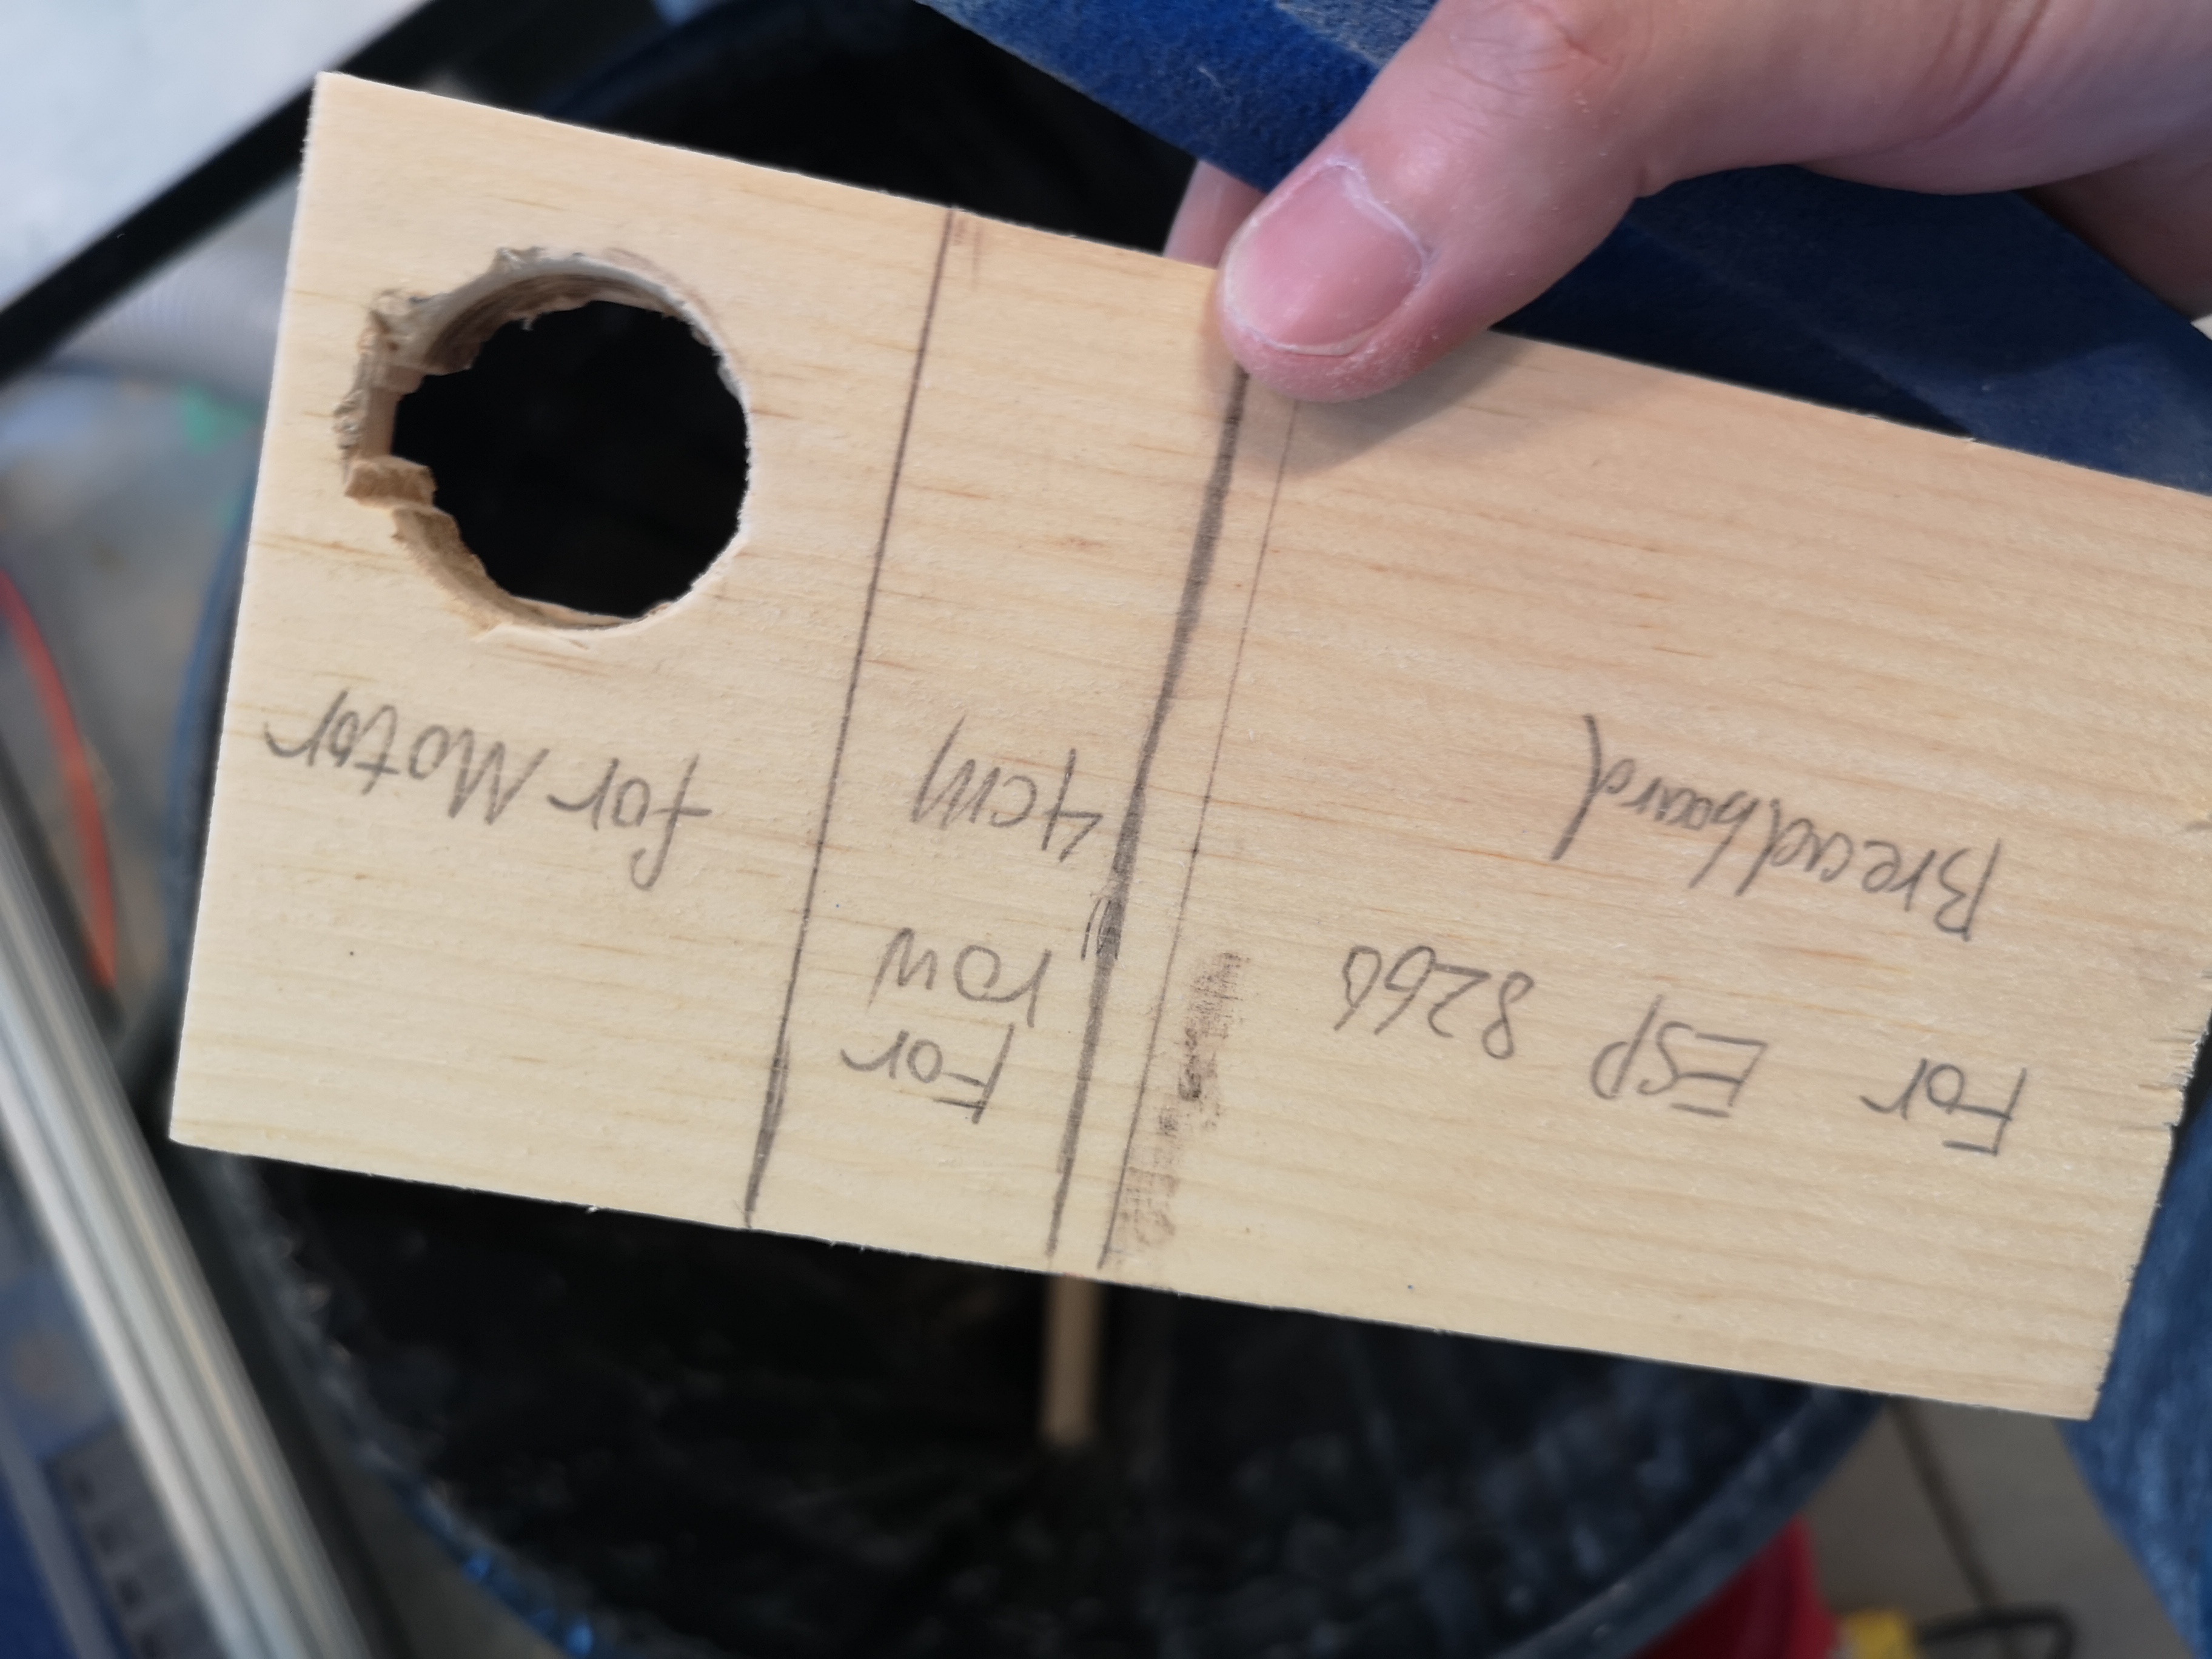 For ESP 8266
Breadboard
For
row
4cm
for Motor